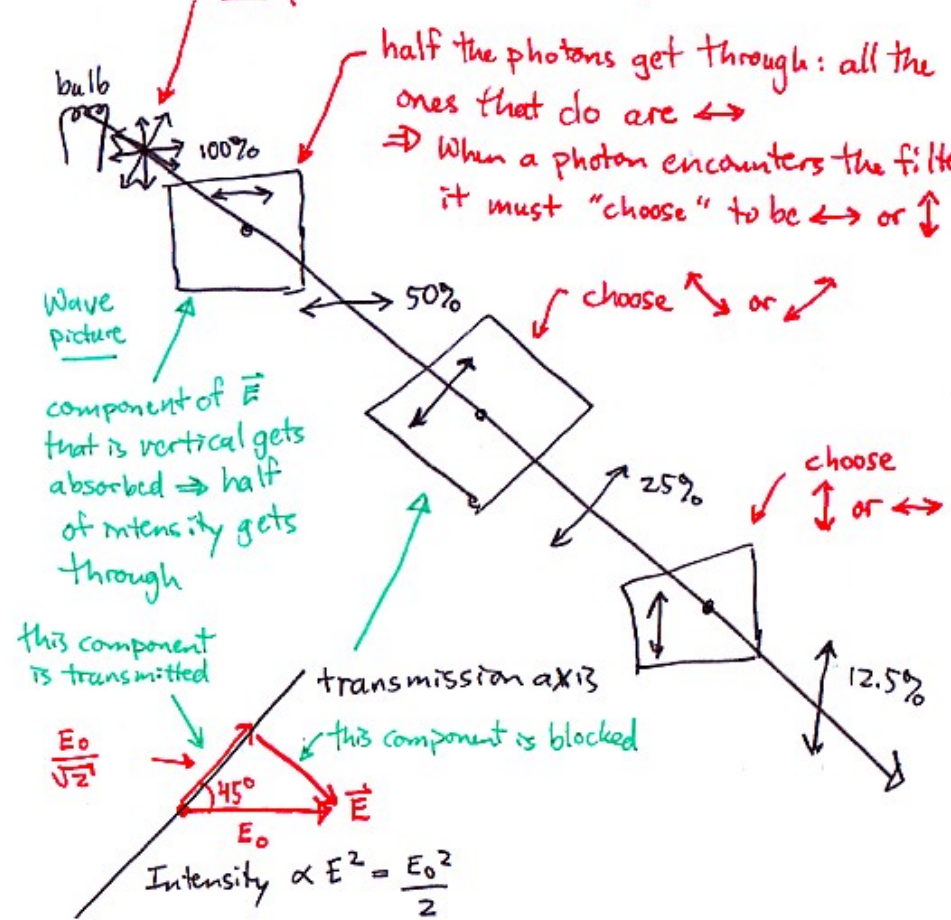 bulb
100%
half the photons get through: all the
ones that do are ↔
⇒ When a photon encounters the filte
it must "choose" to be ↔ or ↕
50%
choose ⤡ or ⤢
Wave
picture
component of E⃗
that is vertical gets
absorbed ⇒ half
of intensity gets
through
25%
choose
↕ or ↔
12.5%
this component
is transmitted
transmission axis
this component is blocked
E₀/√2
45°
E⃗
E₀
Intensity ∝ E² = E₀²/2